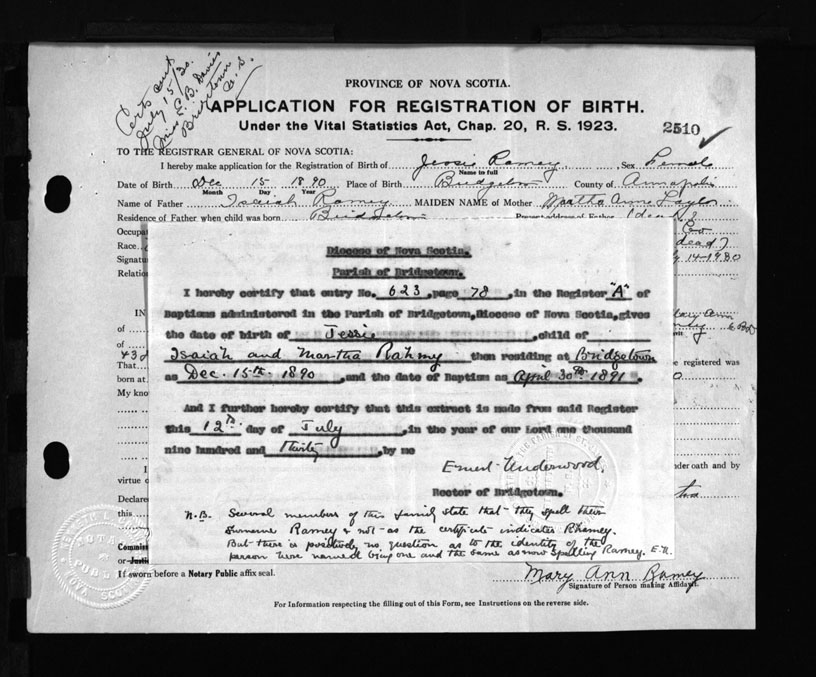 Certs sent
July 15/30
Miss E. B. Davis
Bridgetown
N. S.
PROVINCE OF NOVA SCOTIA.
APPLICATION FOR REGISTRATION OF BIRTH.
Under the Vital Statistics Act, Chap. 20, R. S. 1923.
2510
TO THE REGISTRAR GENERAL OF NOVA SCOTIA:
I hereby make application for the Registration of Birth of Jessie Ramey Sex Female
Name to full
Date of Birth Dec 15 1890 Place of Birth Bridgetown County of Annapolis
Month Day Year
Name of Father Isaiah Ramey MAIDEN NAME of Mother Martha Anne Taylor
Residence of Father when child was born Bridgetown Present address of Father (dead)
Occupa
Co
Race
dead)
Signatu
14-1930
Relation
Diocese of Nova Scotia.
Parish of Bridgetown.
I hereby certify that entry No. 623, page 78, in the Register "A" of
Baptisms administered in the Parish of Bridgetown, Diocese of Nova Scotia, gives
the date of birth of Jessie, child of
Isaiah and Martha Rahmy then residing at Bridgetown
as Dec. 15th. 1890, and the date of Baptism as April 30th 1891.
And I further hereby certify that this extract is made from said Register
this 12th. day of July, in the year of our Lord one thousand
nine hundred and thirty, by me
Ernest Underwood.
Rector of Bridgetown.
N.B. Several members of this family state that they spell their
Surname Ramey & not as the certificate indicates Rhamey.
But there is positively no question as to the identity of the
person here named being one and the same as now spelling Ramey. E.U.
IN
of
of
That
born at
My kno
e registered was
I
der oath and by
virtue o
Declare
this
Commis
or Justi
If sworn before a Notary Public affix seal.
Mary Ann Ramey
Signature of Person making Affidavit.
For Information respecting the filling out of this Form, see Instructions on the reverse side.